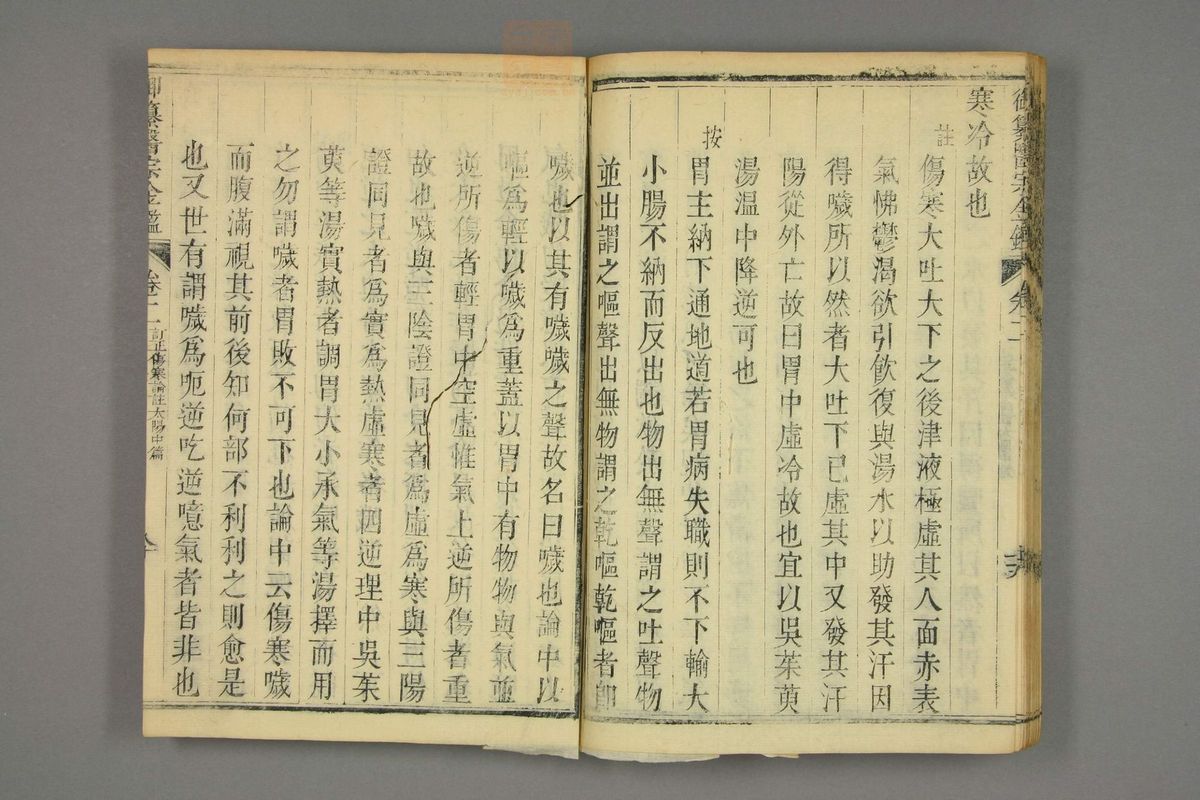 御纂醫宗金鑑 卷二十
寒冷故也
註
傷寒大吐大下之後津液極虛其人面赤表
氣怫鬱渴欲引飲復與湯水以助發其汗因
得噦所以然者大吐下已虛其中又發其汗
陽從外亡故曰胃中虛冷故也宜以吳茱萸
湯温中降逆可也
按
胃主納下通地道若胃病失職則不下輸大
小腸不納而反出也物出無聲謂之吐聲物
並出謂之嘔聲出無物謂之乾嘔乾嘔者卽
噦也以其有噦噦之聲故名曰噦也論中以
嘔爲輕以噦爲重蓋以胃中有物物與氣並
逆所傷者輕胃中空虛惟氣上逆所傷者重
故也噦與三陰證同見者爲虛爲寒與三陽
證同見者爲實爲熱虛寒者四逆理中吳茱
萸等湯實熱者調胃大小承氣等湯擇而用
之勿謂噦者胃敗不可下也論中云傷寒噦
而腹滿視其前後知何部不利利之則愈是
也又世有謂噦爲呃逆吃逆噫氣者皆非也
御纂醫宗金鑑 卷二 訂正傷寒論註太陽中篇